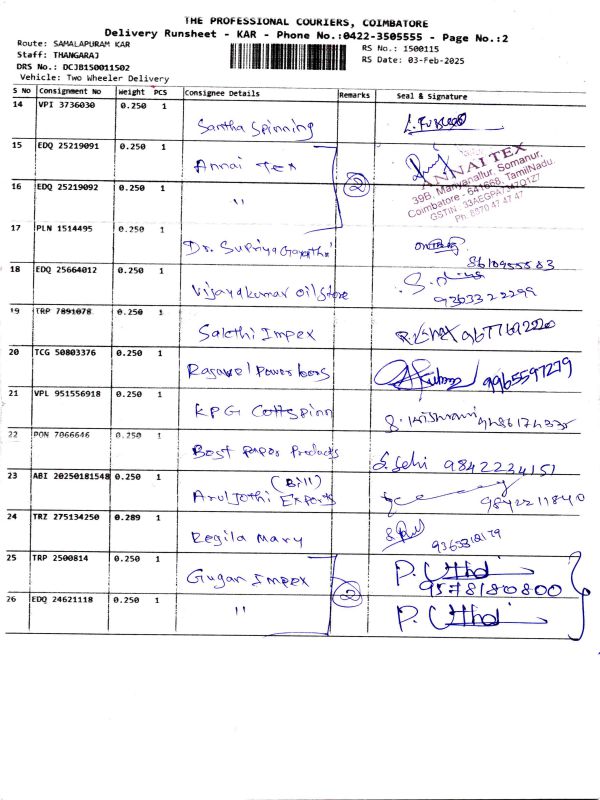 THE PROFESSIONAL COURIERS, COIMBATORE
Delivery Runsheet - KAR - Phone No.:0422-3505555 - Page No.:2
Route: SAMALAPURAM KAR
Staff: THANGARAJ
DRS No.: DCJB150011502
Vehicle: Two Wheeler Delivery
RS No.: 1500115
RS Date: 03-Feb-2025
S No Consignment No Weight PCS Consignee Details Remarks Seal & Signature
14 VPI 3736030 0.250 1
Santha Spinning
15 EDQ 25219091 0.250 1
Annai Tex
16 EDQ 25219092 0.250 1
"
2
ANNAI TEX
39B, Manyanaltur, Somanur,
Coimbatore - 641668, TamilNadu.
Ph: 8870 47 47 47
17 PLN 1514495 1
Dr. Supriya Gayathri
8610955583
18 EDQ 25664012 0.250 1
Vijayakumar oil Store
9363322299
19 TRP 7891078 0.250 1
Sakthi Impex
9677692220
20 TCG 50803376 0.250 1
Rajavel Power looms
9965597279
21 VPL 951556918 0.250 1
KPG Cottspinn
22 PON 7066646 0.250 1
Best paper Products
S. Selvi 9842234151
23 ABI 20250181548 0.250 1
(Bill)
Aruljothi Exports
9842211840
24 TRZ 275134250 0.289 1
Regila Mary
25 TRP 2500814 0.250 1
Gugan Impex
9578180800
26 EDQ 24621118 0.250 1
"
2